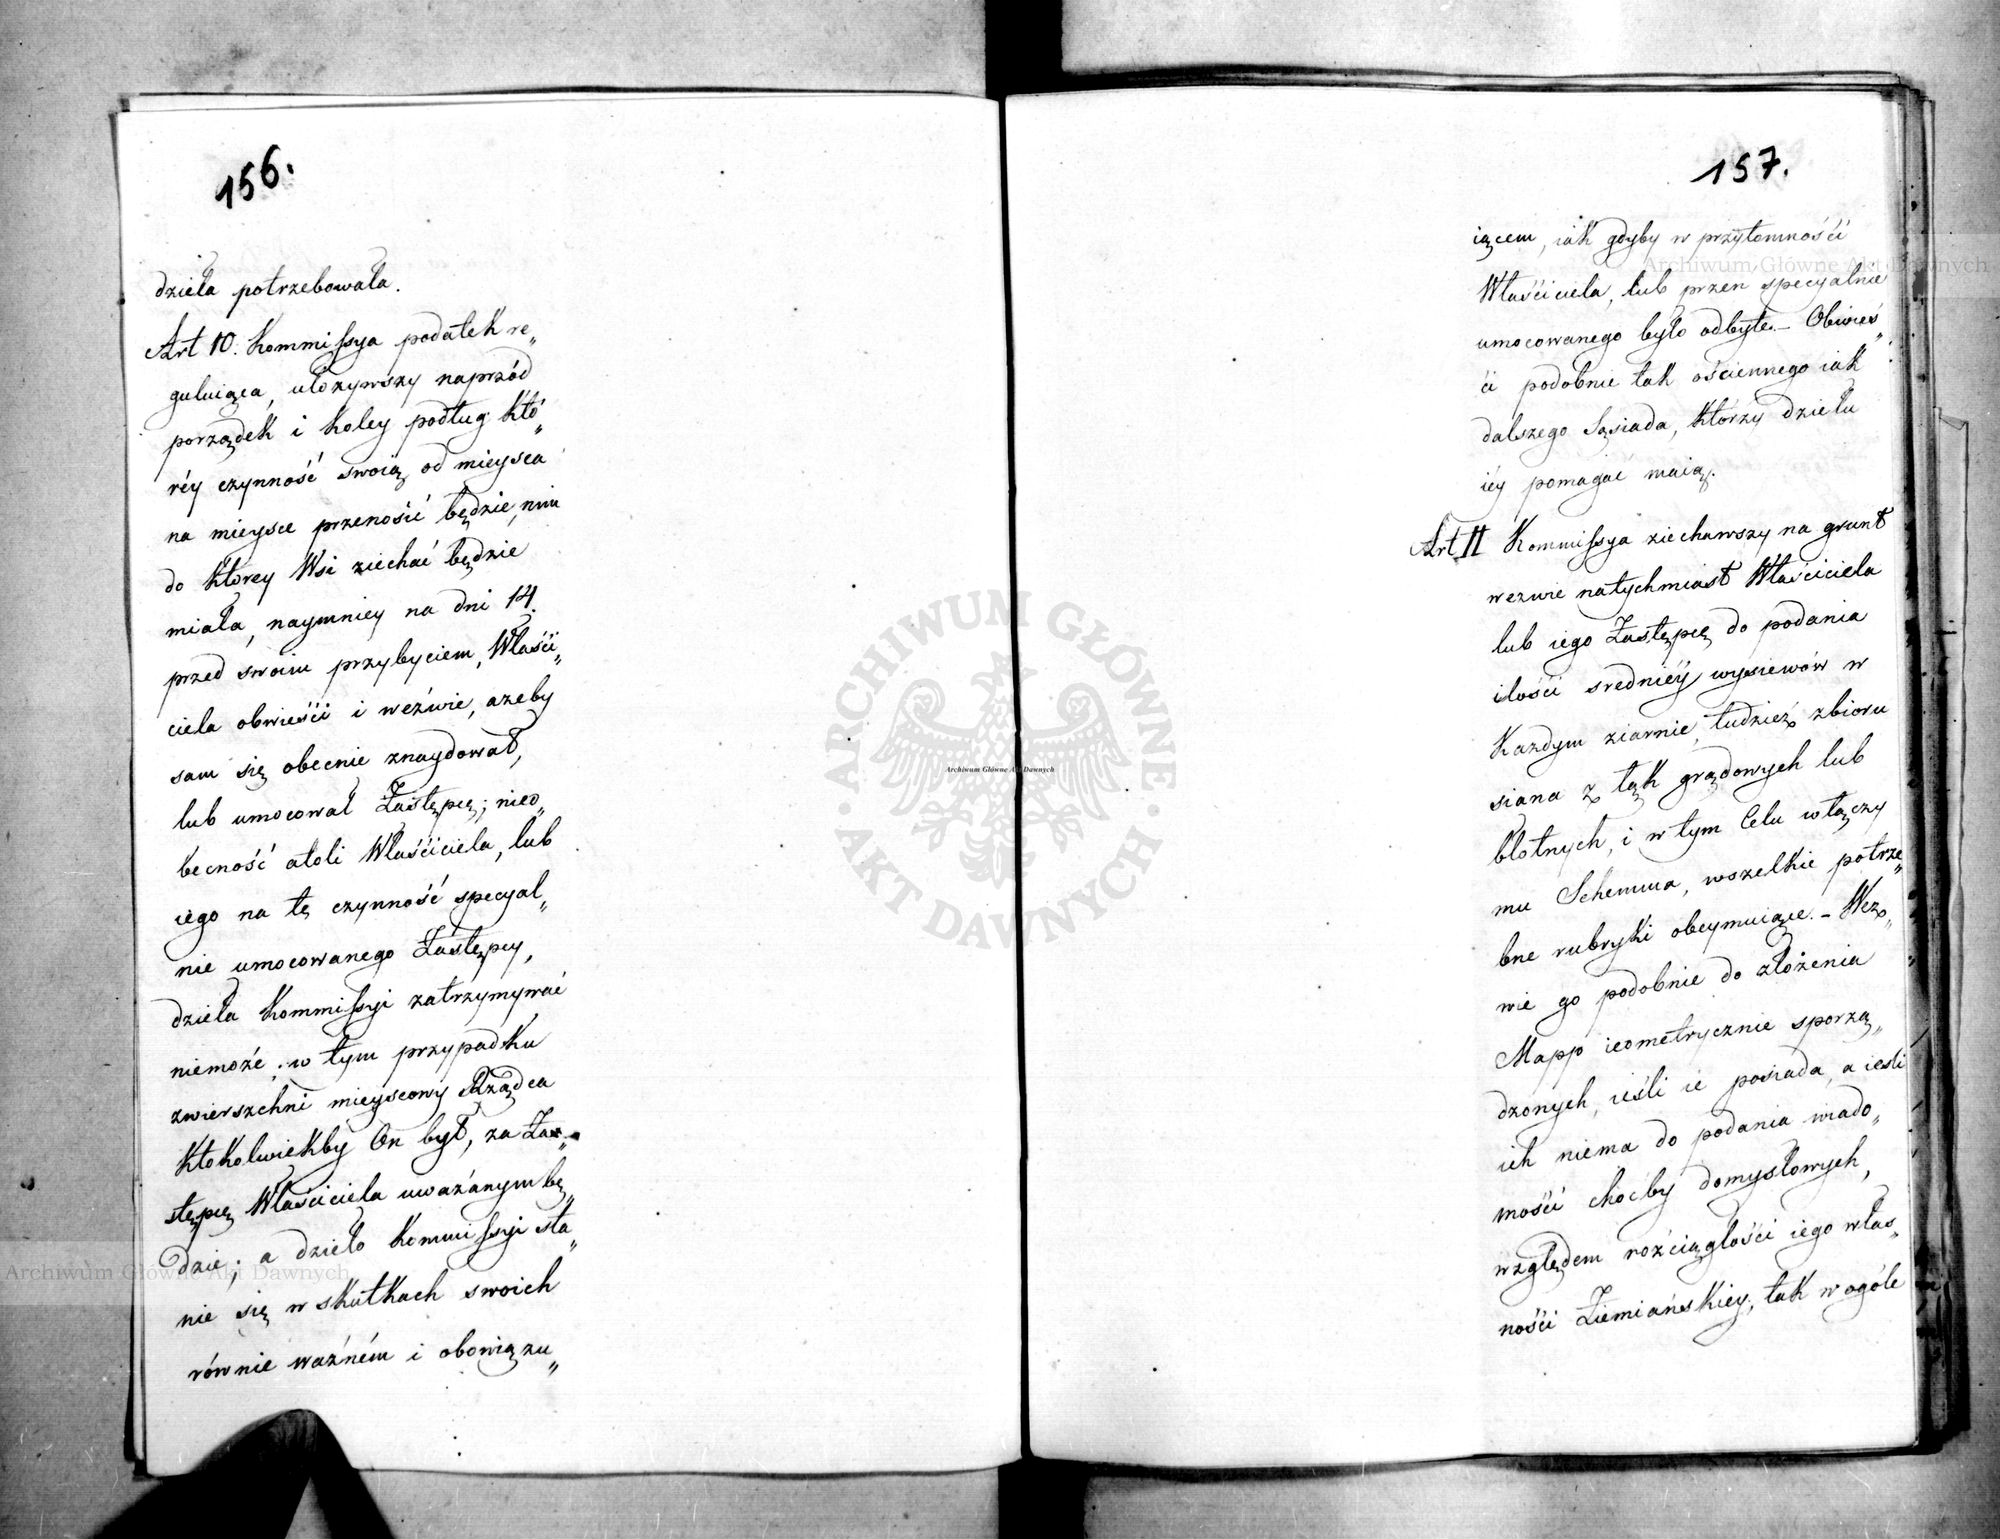 156.
dzieła potrzebowała.
Art 10. Kommissya podatek re„
guluiąca, ułożywszy naprzód
porządek i koley podług któ„
réy czynność swoią od mieysca
na mieysce przenosić będzie, nim
do którey Wsi ziechać będzie
miała, naymniey na dni 14.
przed swoim przybyciem, Właści„
ciela obwieści i wezwie, ażeby
sam się obecnie znaydował,
lub umocował Zastępcę; nieo„
becność atoli Właściciela, lub
iego na tę czynność specyal„
nie umocowanego Zastępcy,
dzieła Kommissyi zatrzymywać
niemoże; w tym przypadku
zwierszchni mieyscowy Rządca
ktokolwiekby On był, za Za„
stępcę Właściciela uważanym bę„
dzie; a dzieło Kommissyi sta„
nie się w skutkach swoich
równie ważném i obowiązu„
157.
iącem, iak gdyby w przytomności
Właściciela, lub przen specyalnie
umocowanego było odbyte. – Obwieś„
ci podobnie tak ościennego iak
dalszego Sąsiada, którzy dziełu
iéy pomagać maią.
Art 11 Kommissya ziechawszy na grunt
wezwie natychmiast Właściciela
lub iego Zastępcę do podania
ilości sredniéy wysiewów w
Każdym ziarnie, tudzież zbioru
siana z łąk grądowych lub
błotnych, i w tym Celu włączy
mu Schemma, wszelkie potrze„
bne rubryki obeymuiące. – Wez„
wie go podobnie do złożenia
Mapp ieometrycznie sporzą„
dzonych, ieśli ie posiada, a ieśli
ich niema do podania wiado„
mości choćby domysłowych,
względem rozciągłości iego włas„
ności Ziemiańskiey, tak w ogóle
ARCHIWUM GŁÓWNE · AKT DAWNYCH ·
Archiwum Główne Akt Dawnych
Archiwum Główne Akt Dawnych
Archiwum Główne Akt Dawnych